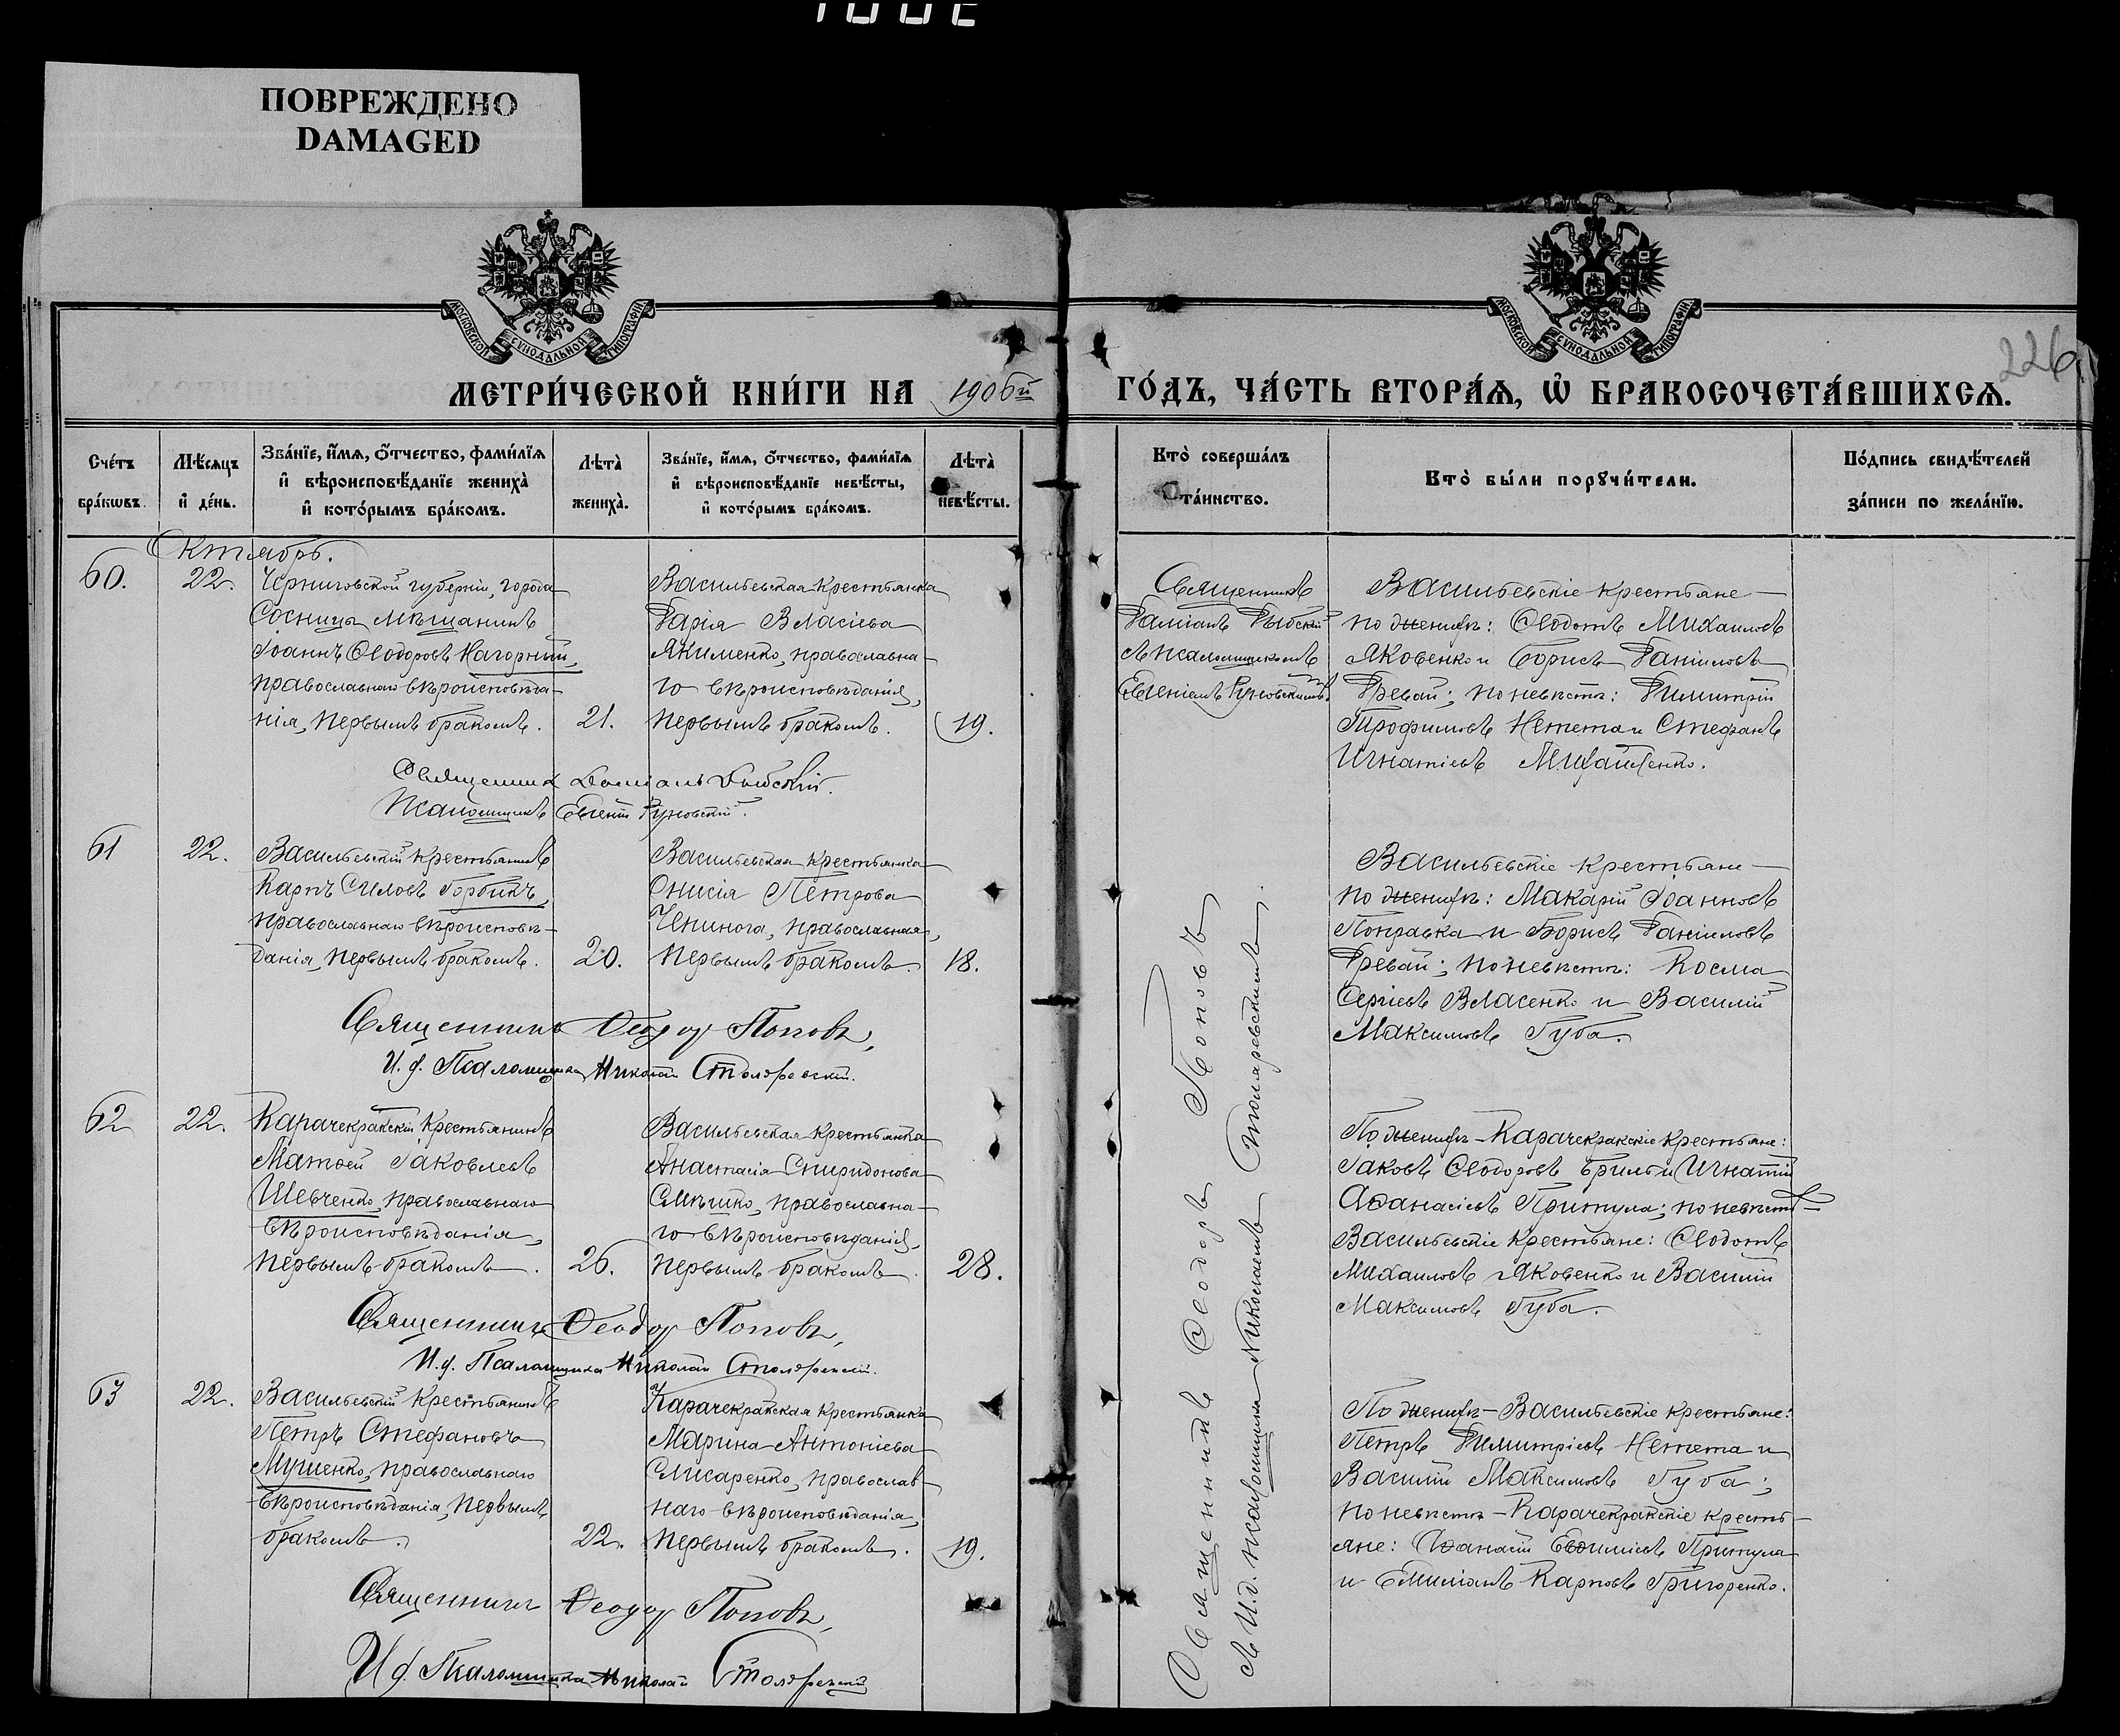 ПОВРЕЖДЕНО
DAMAGED
МОСКОВСКОЙ СУНОДАЛЬНОЙ ТИПОГРАФІИ
МОСКОВСКОЙ СУНОДАЛЬНОЙ ТИПОГРАФІИ
226
МЕТРИ́ЧЕСКОЙ КНИ́ГИ НА 1906й ГО́ДЪ, ЧА́СТЬ ВТОРА́Ѧ, Ѡ҆ БРАКОСОЧЕТА́ВШИХСѦ.
Сче́тъ
бра́кѡвъ.
Мѣ́сяцъ
и҆ де́нь.
Зва́нїе, и҆́мѧ, ѻ҆́тчество, фами́лїѧ
и҆ вѣроисповѣ́данїе жениха̀
и҆ кото́рымъ бра́комъ.
Лѣта̀
жениха̀.
Зва́нїе, и҆́мѧ, ѻ҆́тчество, фами́лїѧ
и҆ вѣроисповѣ́данїе невѣ́сты,
и҆ кото́рымъ бра́комъ.
Лѣта̀
невѣ́сты.
Кто̀ соверша́лъ
та́инство.
Кто̀ бы́ли порꙋчи́тели.
По́дпись свидѣ́телей
за́писи по жела́нїю.
Октябрь.
60.
22.
Черниговской губерніи, города
Сосницы мѣщанинъ
Іоаннъ Ѳеодоровъ Нагорный,
православнаго вѣроисповѣда-
нія, первымъ бракомъ.
21.
Васильевская крестьянка
Дарія Власіева
Якименко, православна-
го вѣроисповѣданія,
первымъ бракомъ.
19.
Священникъ
Даміанъ Дыбскій
съ псаломщикомъ
Евгеніемъ Руновскимъ.
Васильевскіе крестьяне
по женихѣ: Ѳеодотъ Михаиловъ
Яковенко и Борисъ Даніиловъ
Гревай; по невѣстѣ: Димитрій
Трофимовъ Нетета и Стефанъ
Игнатіевъ
Священникъ Даміанъ Дыбскій.
Псаломщикъ Евгеній Руновскій.
61
22.
Васильевскій крестьянинъ
Карпъ Силовъ Горбикъ,
православнаго вѣроисповѣ-
данія, первымъ бракомъ.
20.
Васильевская крестьянка
Онисія Петрова
православная,
первымъ бракомъ.
18.
Васильевскіе крестьяне
по женихѣ: Макарій Іоанновъ
Поправка и Борисъ Даніиловъ
Гревай; по невѣстѣ: Косма
Сергіевъ Власенко и Василій
Максимовъ Губа.
Священникъ Ѳеодоръ Поповъ,
И. д. Псаломщика Николай Столяревскій.
62
22.
Карачекракскій крестьянинъ
Матѳей Іаковлевъ
Шевченко, православнаго
вѣроисповѣданія,
первымъ бракомъ.
26.
Васильевская крестьянка
Анастасія Спиридонова
Смѣшко, православна-
го вѣроисповѣданія,
первымъ бракомъ.
28.
По женихѣ - Карачекракскіе крестьяне:
Іаковъ Ѳеодоровъ Бриль и Игнатій
Аѳанасіевъ Притула; по невѣстѣ -
Васильевскіе крестьяне: Ѳеодотъ
Михаиловъ Яковенко и Василій
Максимовъ Губа.
Священникъ Ѳеодоръ Поповъ,
И. д. Псаломщика Николай Столяревскій.
63
22.
Васильевскій крестьянинъ
Петръ Стефановъ
Мушенко, православнаго
вѣроисповѣданія, первымъ
бракомъ.
22.
Карачекракская крестьянка
Марина Антоніева
Слисаренко, православ-
наго вѣроисповѣданія,
первымъ бракомъ.
19.
По женихѣ - Васильевскіе крестьяне:
Петръ Димитріевъ Нетета и
Василій Максимовъ Губа;
по невѣстѣ - Карачекракскіе кресть-
яне: Аѳанасій Евѳиміевъ Притула
и Емиліанъ Карповъ Григоренко.
Священникъ Ѳеодоръ Поповъ,
И. д. Псаломщика Николай Столяревскій
Священникъ Ѳеодоръ Поповъ
съ И. д. псаломщика Николаемъ Столяревскимъ.